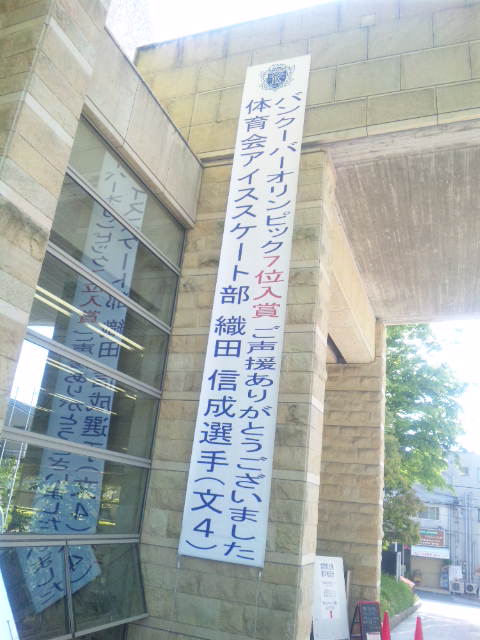 バンクーバーオリンピック7位入賞 ご声援ありがとうございました
体育会アイススケート部 織田 信成選手(文4)